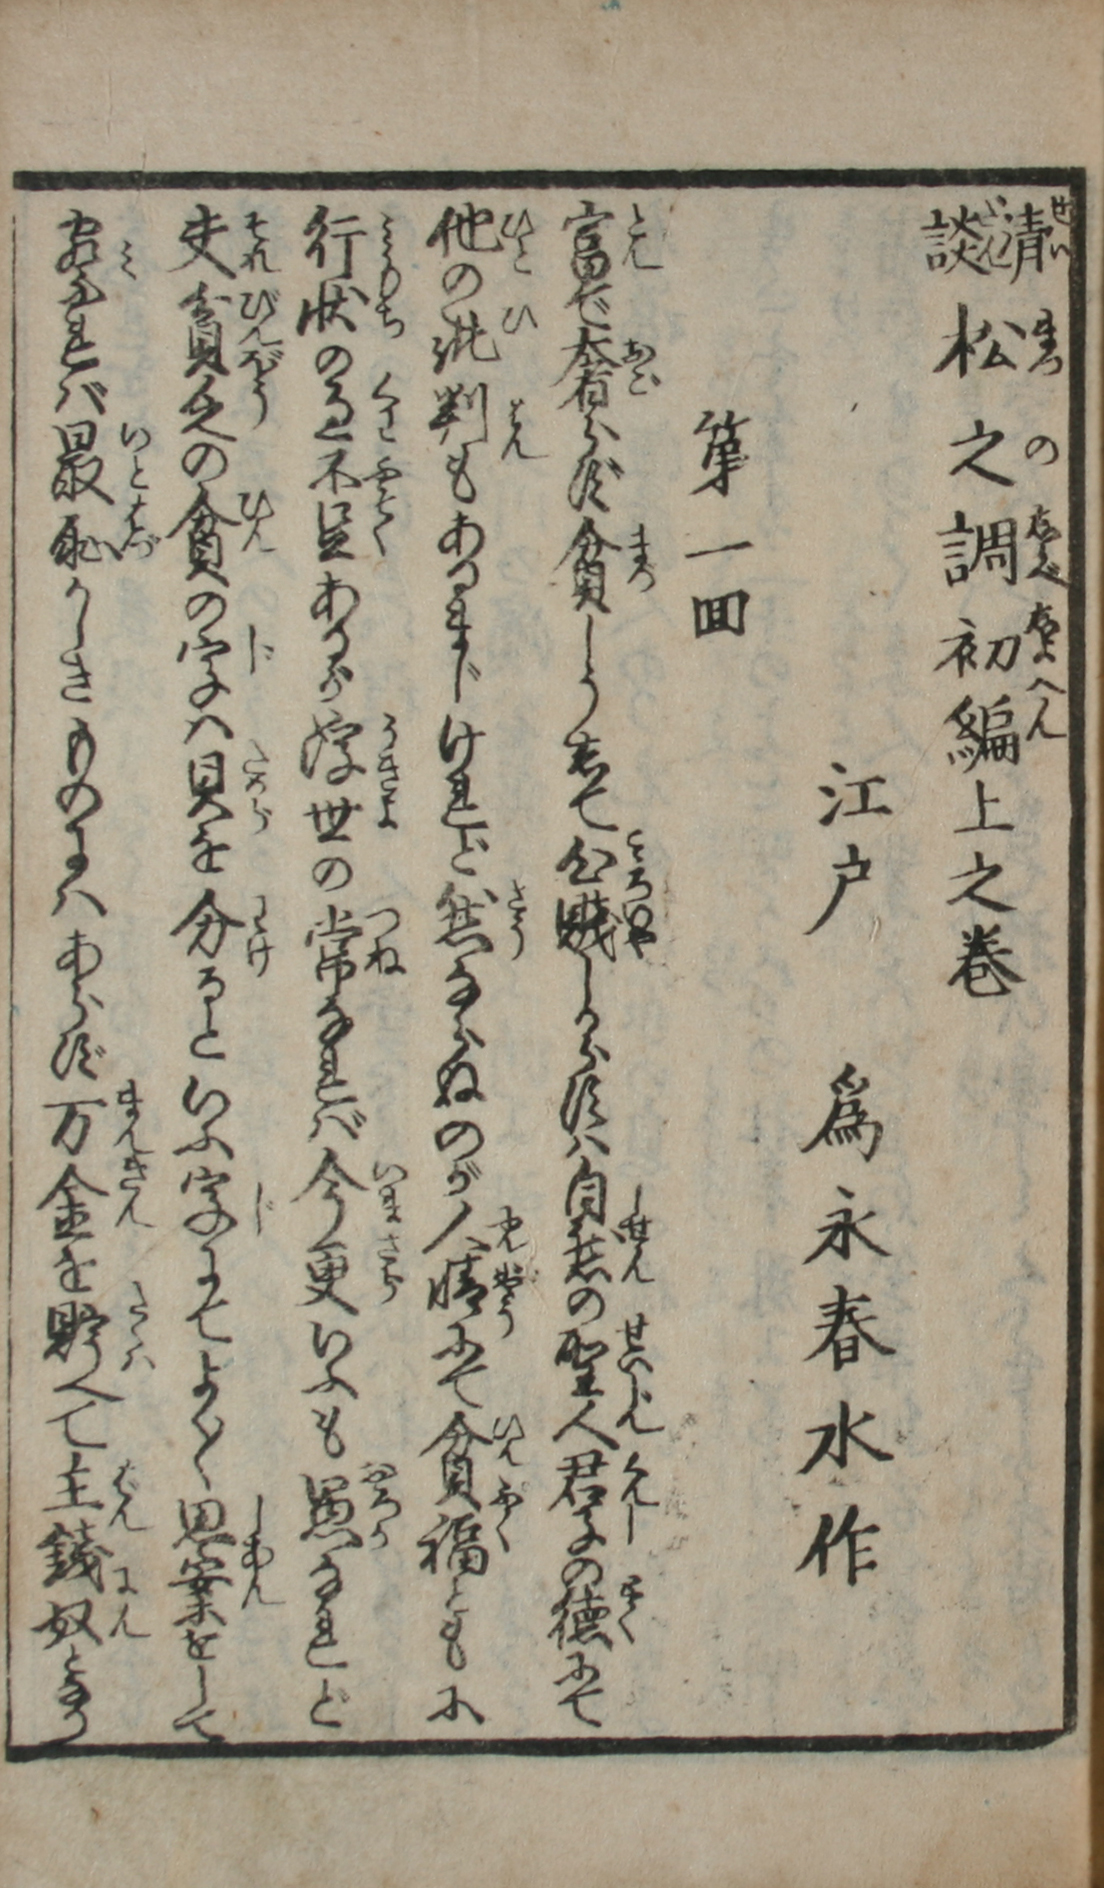 清談松之調初編上之巻
江戸　為永春水作
第一回
富で奢らず貧しうして心賤しからずハ自然の聖人君子の徳にて
他の批判もあるまじけれど然ならぬのが人情にて貧福ともに
行状のくせ不足あるが浮世の常なれバ今更いふも愚なれど
夫貧乏の貧の字ハ貝を分ると いふ字にてよく〳〵思案をして
見れバ最恥かしきものにハあらず万金を貯へて主銭奴となり